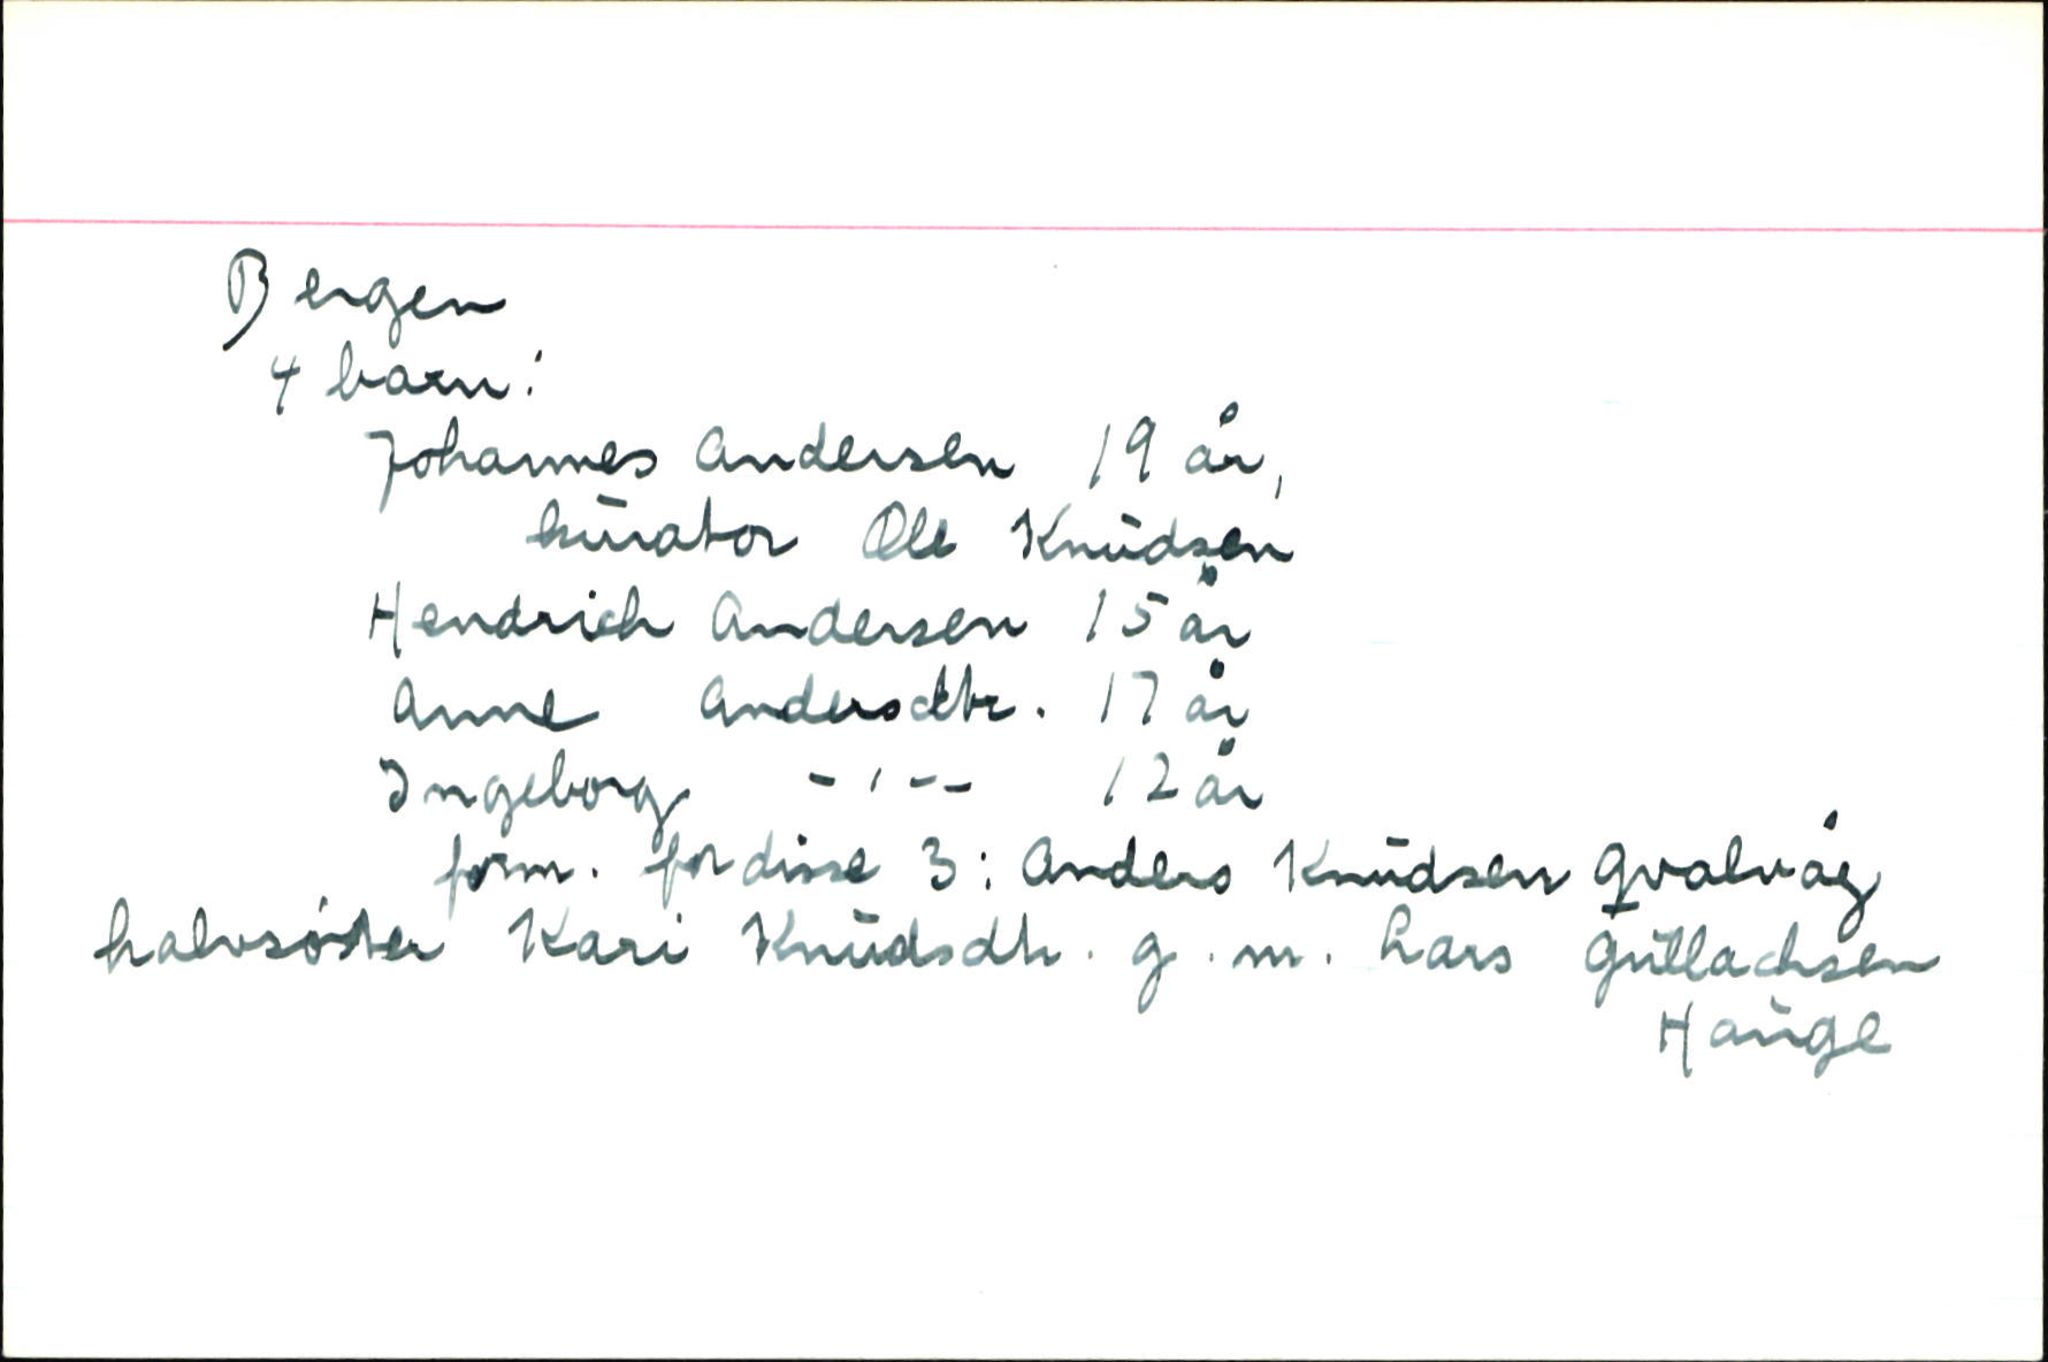 Bergen
4 barn:
Johannes Andersen 19 år,
kurator Ole Knudsen
Hendrich Andersen 15 år
Anne Andersdtr. 17 år
Ingeborg -'-- 12 år
form. for disse 3: Anders Knudsen Qvalvåg
halvsöster Kari Knudsdtr. g. m. Lars Gullachsen
Hauge